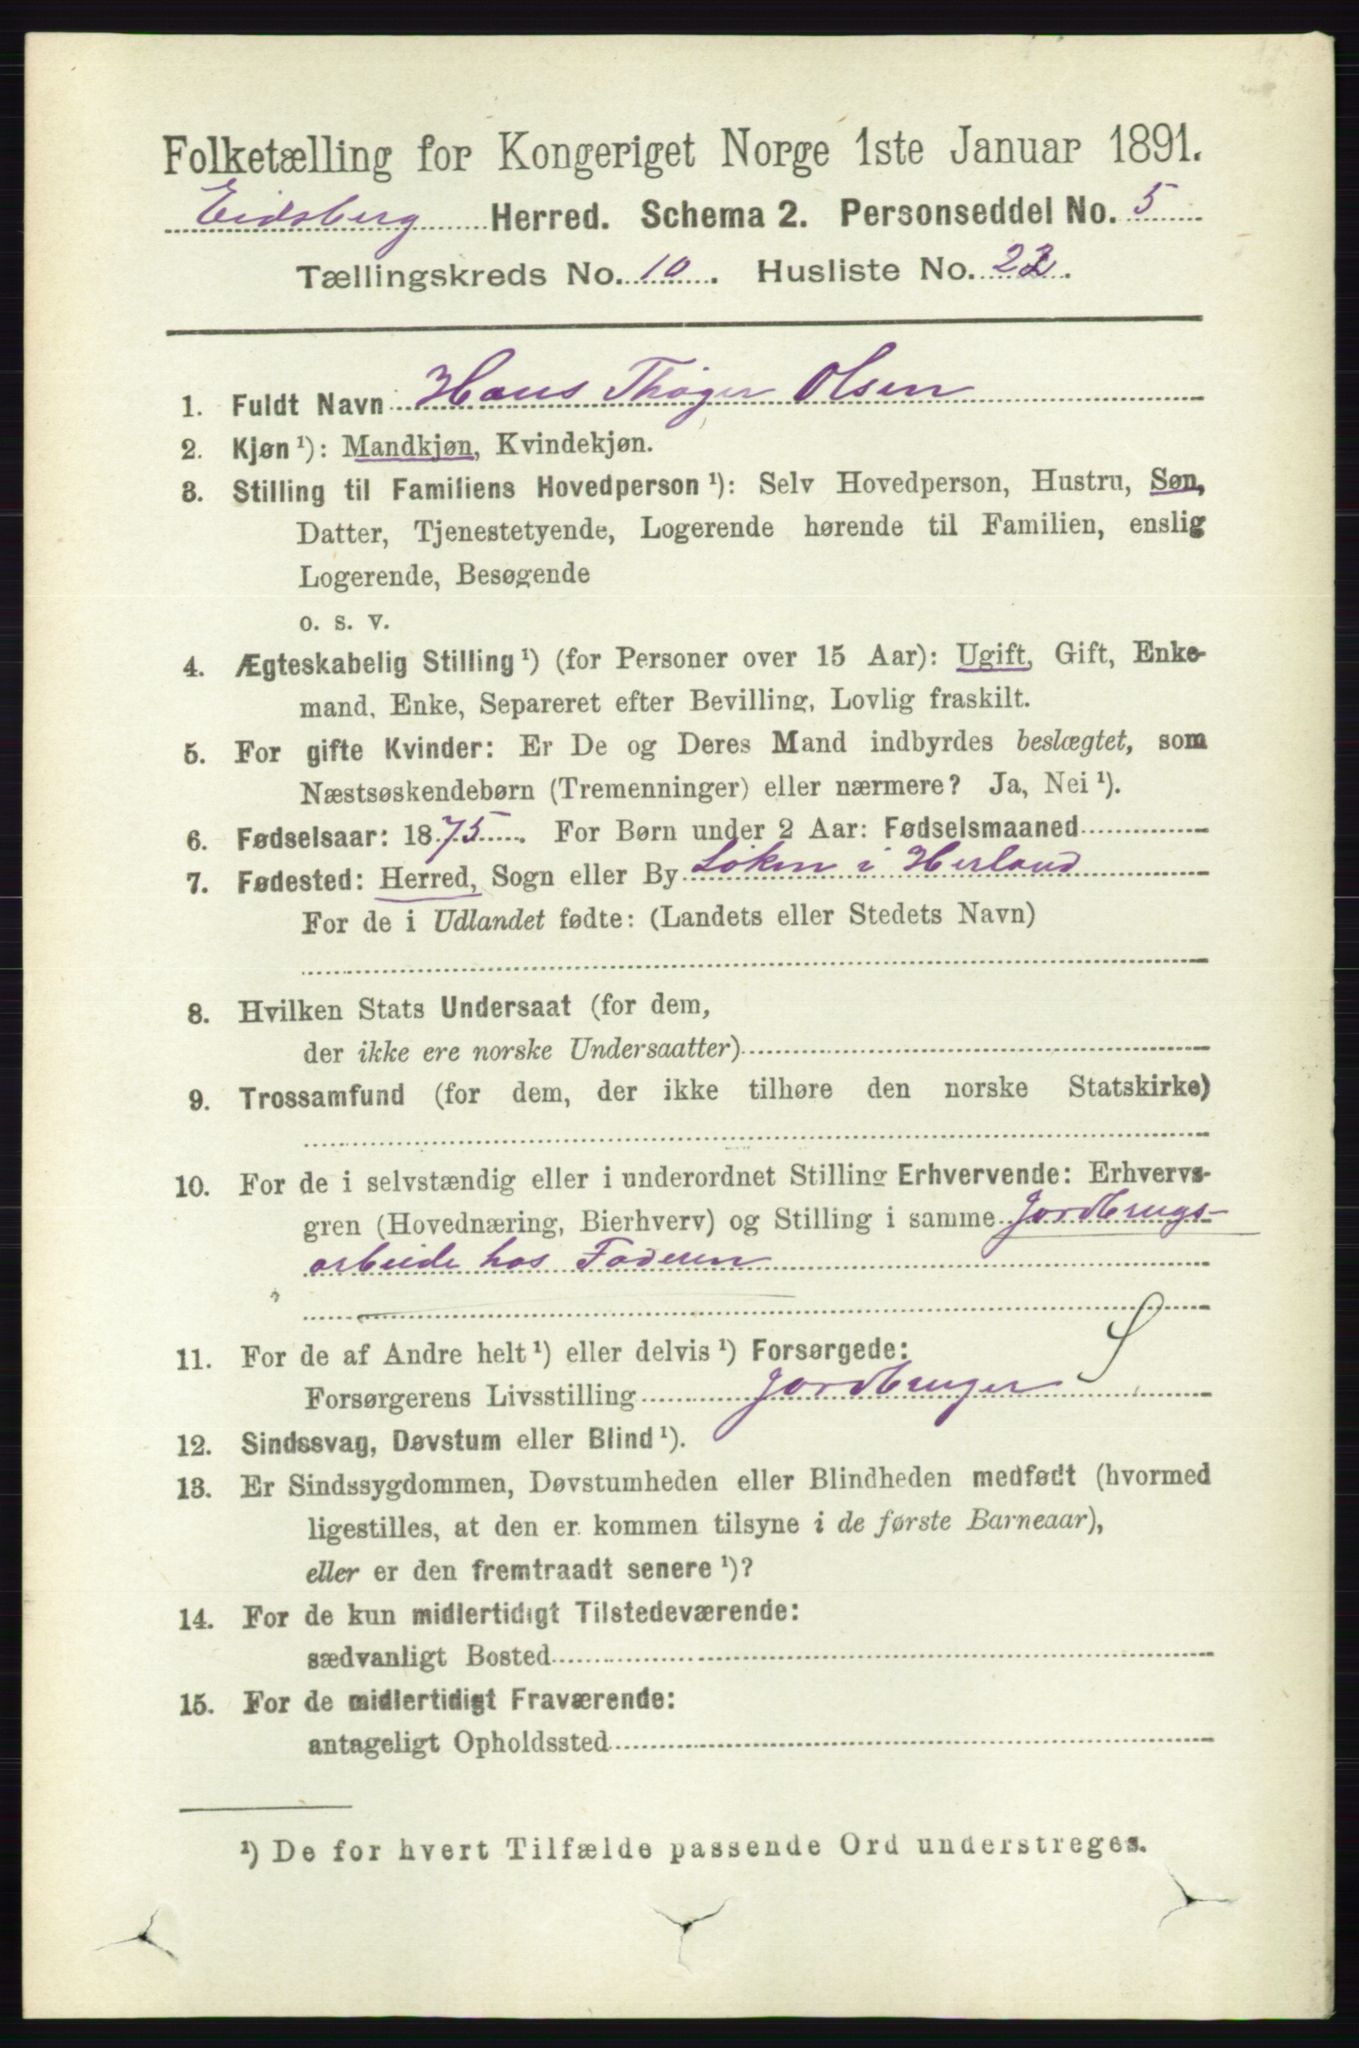 Folketælling for Kongeriget Norge 1ste Januar 1891.
Eidsberg Herred. Schema 2. Personseddel No. 5
Tællingskreds No. 10. Husliste No. 22.
1. Fuldt Navn Hans Thøger Olsen
2. Kjøn¹): Mandkjøn, Kvindekjøn.
3. Stilling til Familiens Hovedperson¹): Selv Hovedperson, Hustru, Søn,
Datter, Tjenestetyende, Logerende hørende til Familien, enslig
Logerende, Besøgende
o. s. v.
4. Ægteskabelig Stilling¹) (for Personer over 15 Aar): Ugift, Gift, Enke-
mand, Enke, Separeret efter Bevilling, Lovlig fraskilt.
5. For gifte Kvinder: Er De og Deres Mand indbyrdes beslægtet, som
Næstsøskendebørn (Tremenninger) eller nærmere? Ja, Nei¹).
6. Fødselsaar: 1875. For Børn under 2 Aar: Fødselsmaaned
7. Fødested: Herred, Sogn eller By Løken i Herland
For de i Udlandet fødte: (Landets eller Stedets Navn)
8. Hvilken Stats Undersaat (for dem,
der ikke ere norske Undersaatter)
9. Trossamfund (for dem, der ikke tilhøre den norske Statskirke)
10. For de i selvstændig eller i underordnet Stilling Erhvervende: Erhvervs-
gren (Hovednæring, Bierhverv) og Stilling i samme Jordbrugs-
arbeide hos Faderen
11. For de af Andre helt¹) eller delvis¹) Forsørgede: S
Forsørgerens Livsstilling Jordbruger
12. Sindssvag, Døvstum eller Blind¹).
13. Er Sindssygdommen, Døvstumheden eller Blindheden medfødt (hvormed
ligestilles, at den er kommen tilsyne i de første Barneaar),
eller er den fremtraadt senere¹)?
14. For de kun midlertidigt Tilstedeværende:
sædvanligt Bosted
15. For de midlertidigt Fraværende:
antageligt Opholdssted
¹) De for hvert Tilfælde passende Ord understreges.